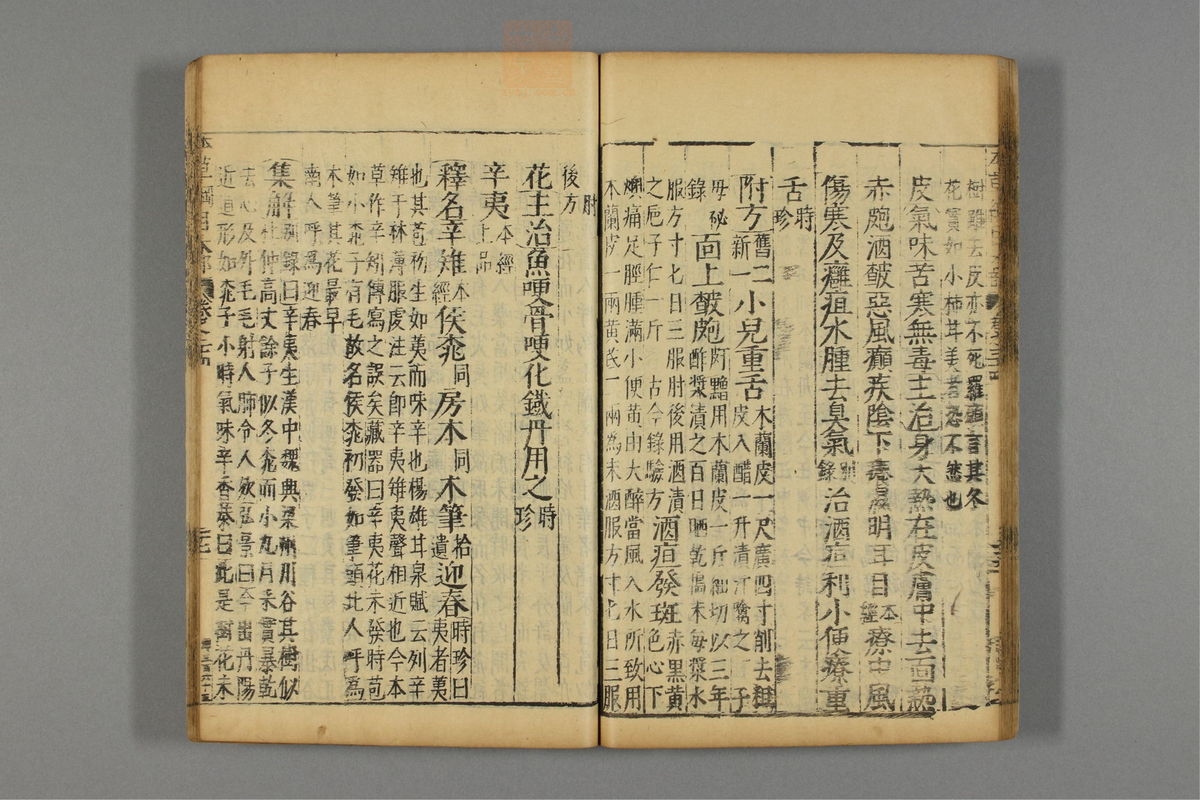 樹雖去皮亦不死羅願言其冬
花實如小柿甘美者恐不然也
皮氣味苦寒無毒主治身大熱在皮膚中去面熱
赤皰酒皶惡風癲疾陰下癢濕明耳目本經療中風
傷寒及癰疽水腫去臭氣別錄治酒疸利小便療重
舌時珍
附方舊二新一小兒重舌木蘭皮一尺廣四寸削去粗
皮入醋一升漬汁噙之子
母秘錄面上皶皰䵟黯用木蘭皮一斤細切以三年
酢漿漬之百日晒乾搗末每漿水
服方寸七日三服肘後用酒漬
之巵子仁一斤 古今錄驗方酒疸發斑赤黑黃色心下
燠痛足脛腫滿小便黃由大醉當風入水所致用
木蘭皮一兩黃芪一兩為末酒服方寸七日三服
肘後方
花主治魚哽骨哽化鐵丹用之時珍
辛夷本經上品
釋名辛雉本經侯桃同房木同木筆拾遺迎春時珍曰夷者荑
也其苞初生如荑而味辛也楊雄甘泉賦云列辛
雉于林薄服虔注云即辛夷雉夷聲相近也今本
草作辛矧傳寫之誤矣藏器曰辛夷花未發時苞
如小桃子有毛故名侯桃初發如筆頭北人呼為
木筆其花最早
南人呼為迎春
集解別錄曰辛夷生漢中魏興梁州川谷其樹似
杜仲高丈餘子似冬桃而小九月采實暴乾
去心及外毛毛射人肺令人欬弘景曰今出丹陽
近道形如桃子小時氣味辛香恭曰此是樹花未